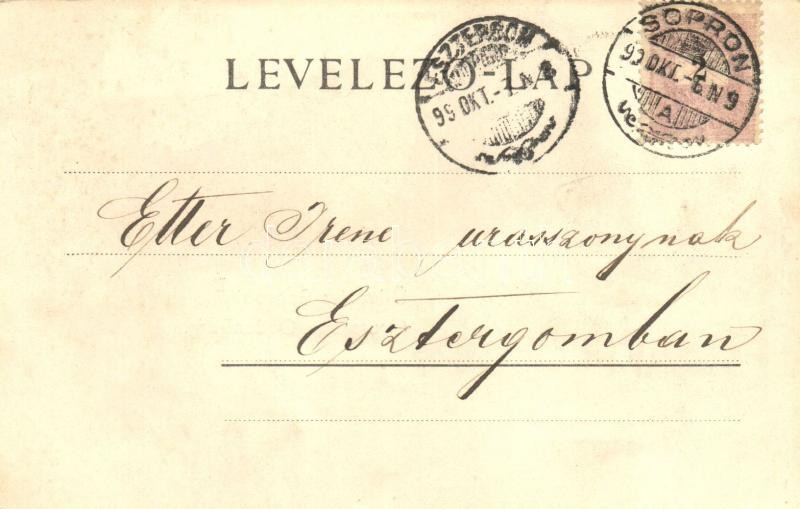 LEVELEZŐ-LAP
ESZTERGOM
99 OKT.-7.
SOPRON
99 OKT.-6.N9
A
2
Etter Irene urasszonynak
Esztergomban